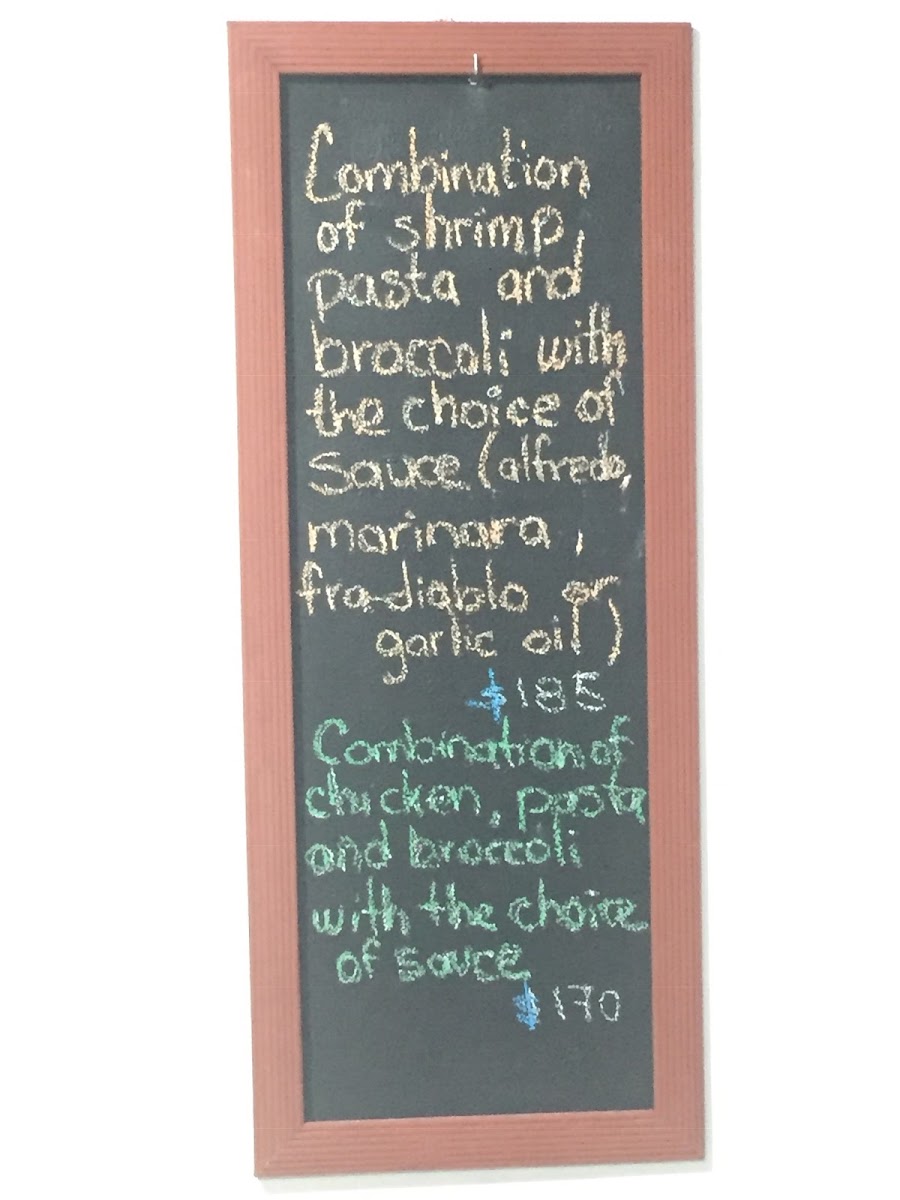 Combination
of shrimp,
pasta and
broccoli with
the choice of
Sauce (alfredo,
marinara,
fra-diablo or
garlic oil)
$185
Combination of
chicken, pasta
and broccoli
with the choice
of sauce
$170